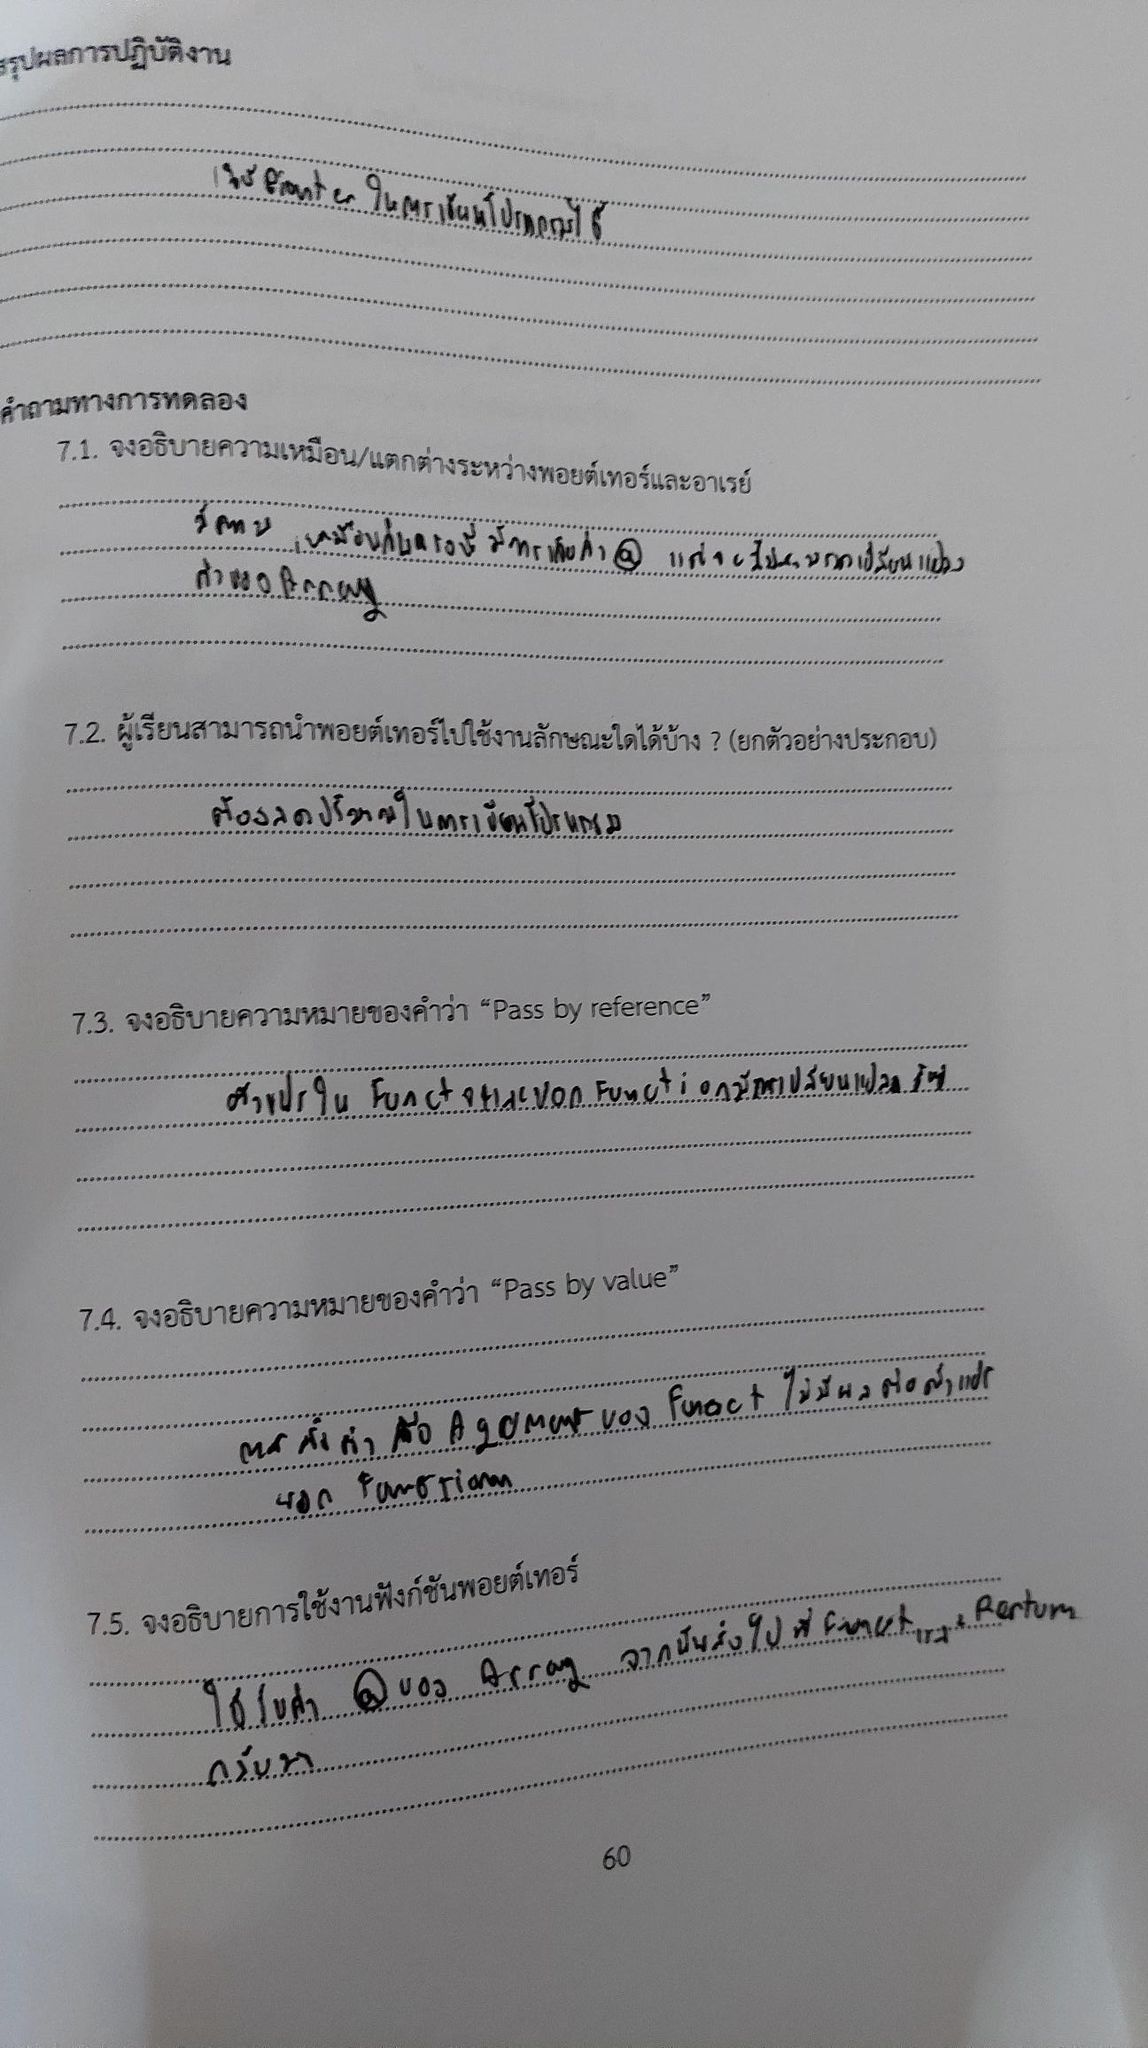 สรุปผลการปฏิบัติงาน
ใช้ Pointer ในการเขียนโปรแกรมได้
คำถามทางการทดลอง
7.1. จงอธิบายความเหมือน/แตกต่างระหว่างพอยต์เทอร์และอาเรย์
มีความเหมือนกันตรงที่มีการเก็บค่า @ แต่จะไม่สามารถเปลี่ยนแปลง
ค่าของ Array
7.2. ผู้เรียนสามารถนำพอยต์เทอร์ไปใช้งานลักษณะใดได้บ้าง ? (ยกตัวอย่างประกอบ)
ต้องลดปริมาณในการเขียนโปรแกรม
7.3. จงอธิบายความหมายของคำว่า “Pass by reference”
ตัวแปรใน Funct และนอก Function มีการเปลี่ยนแปลง
7.4. จงอธิบายความหมายของคำว่า “Pass by value”
ค่า ของ Funct ไม่มีผลต่อตัวแปร
นอก
7.5. จงอธิบายการใช้งานฟังก์ชันพอยต์เทอร์
ใช้รับค่า @ ของ Array จากนั้นส่งไปที่ Funct และ Return
กลับมา
60